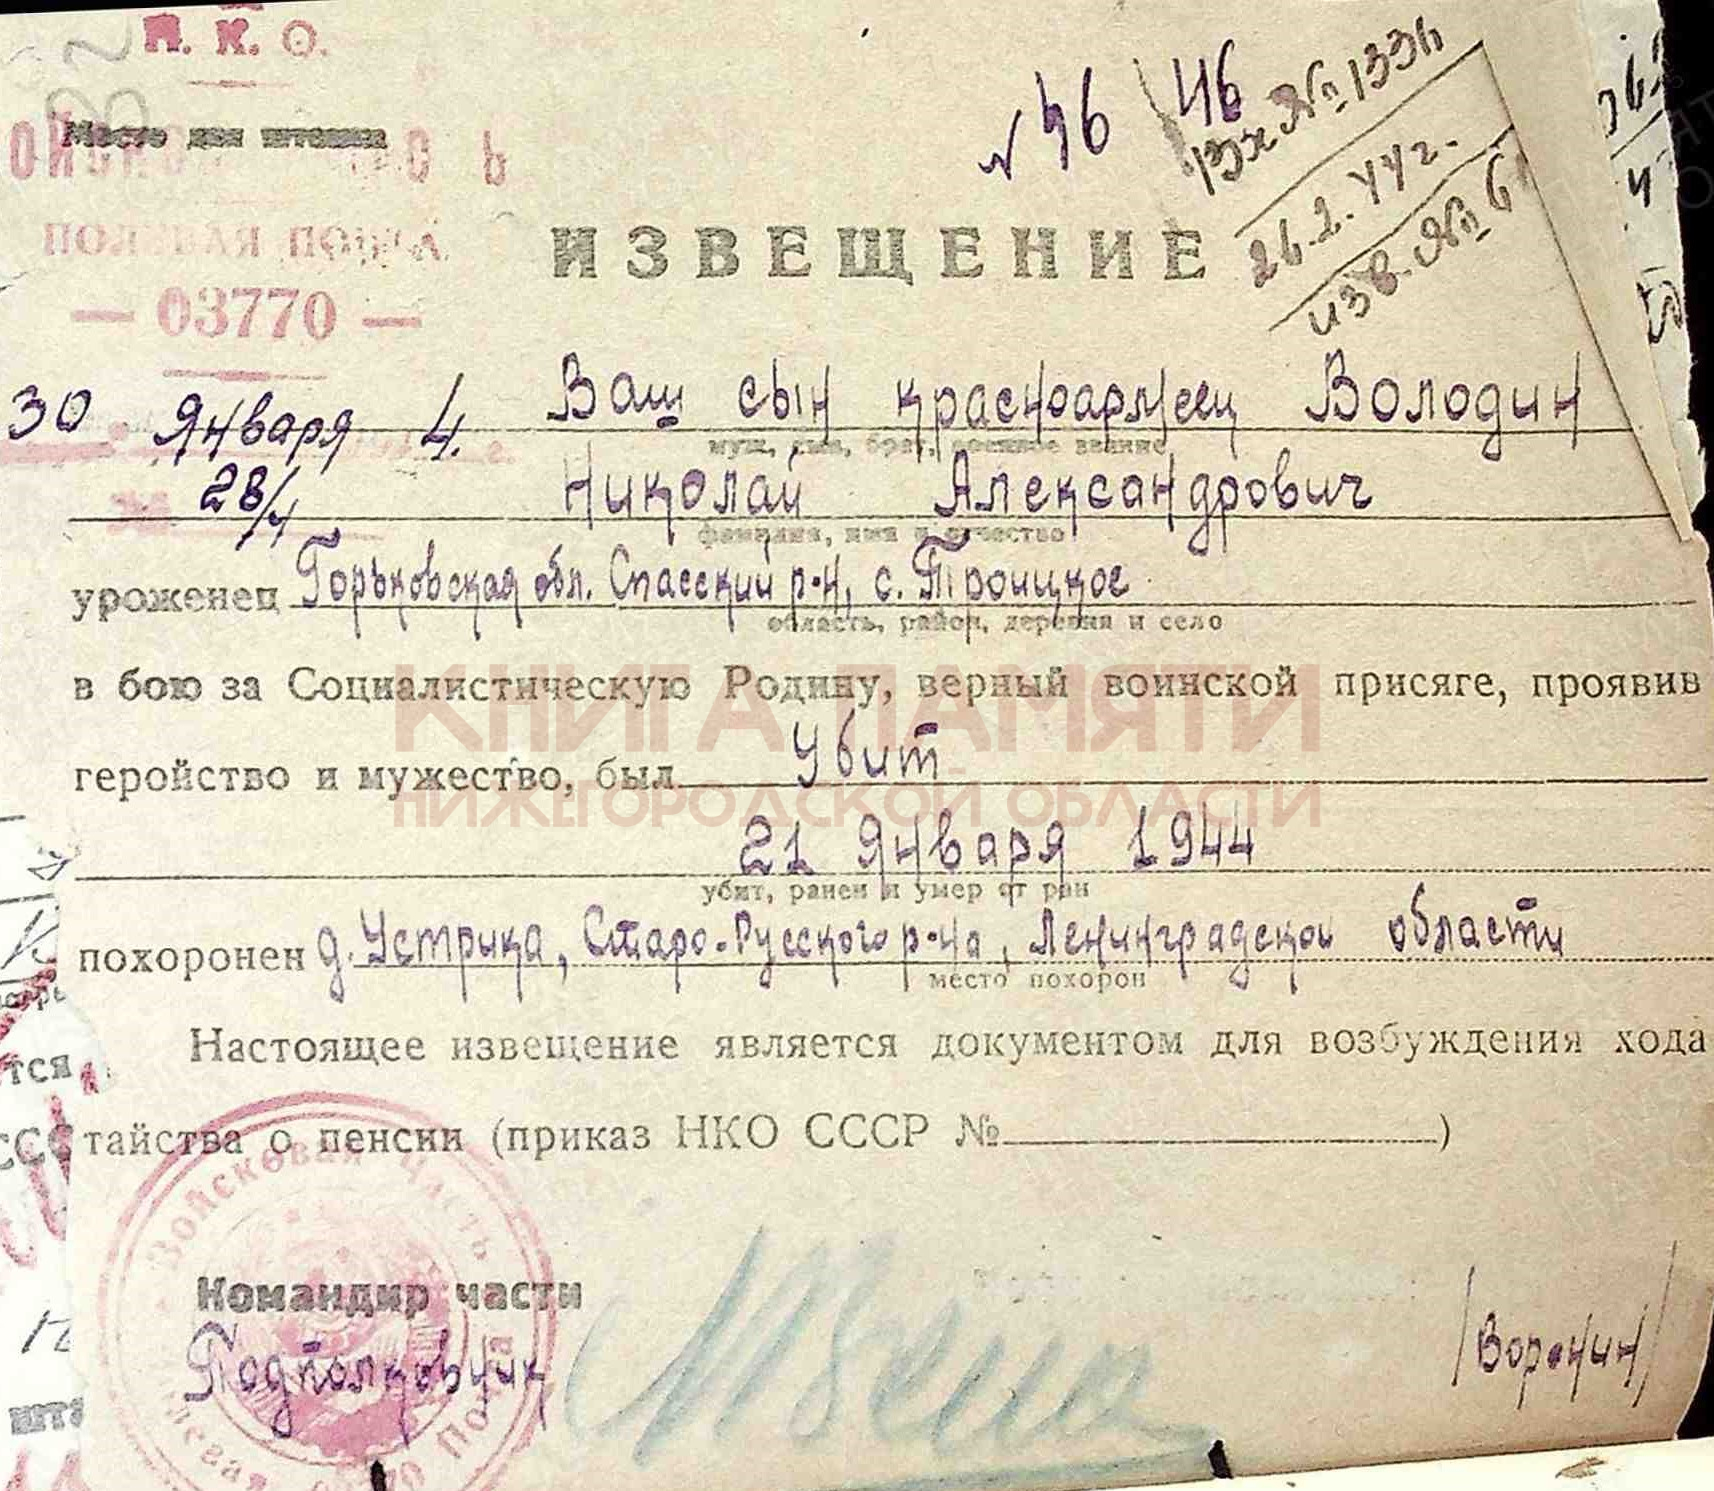 Н. К. О.
Место для штампа
ПОЛЕВАЯ ПОЧТА
— 03770 —
№ 46 46
Вх №1336
26.2.44г.
изв. №
ИЗВЕЩЕНИЕ
30 Января 4.
28/4
Ваш сын красноармеец Володин
муж, сын, брат, военное звание
Николай Александрович
фамилия, имя и отчество
уроженец Горьковская обл. Спасский р-н, с. Троицкое
область, район, деревня и село
в бою за Социалистическую Родину, верный воинской присяге, проявив
КНИГА ПАМЯТИ
геройство и мужество, был Убит
НИЖЕГОРОДСКОЙ ОБЛАСТИ
21 Января 1944
убит, ранен и умер от ран
похоронен д. Устрика, Старо-Русского р-на, Ленинградской области
место похорон
Настоящее извещение является документом для возбуждения хода
тайства о пенсии (приказ НКО СССР № )
Войсковая Часть
Командир части
Подполковник
/Воронин/